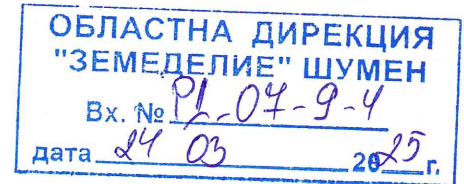 ОБЛАСТНА ДИРЕКЦИЯ
"ЗЕМЕДЕЛИЕ" ШУМЕН
Вх. № РД-07-9-4
дата 24 03 2025 г.